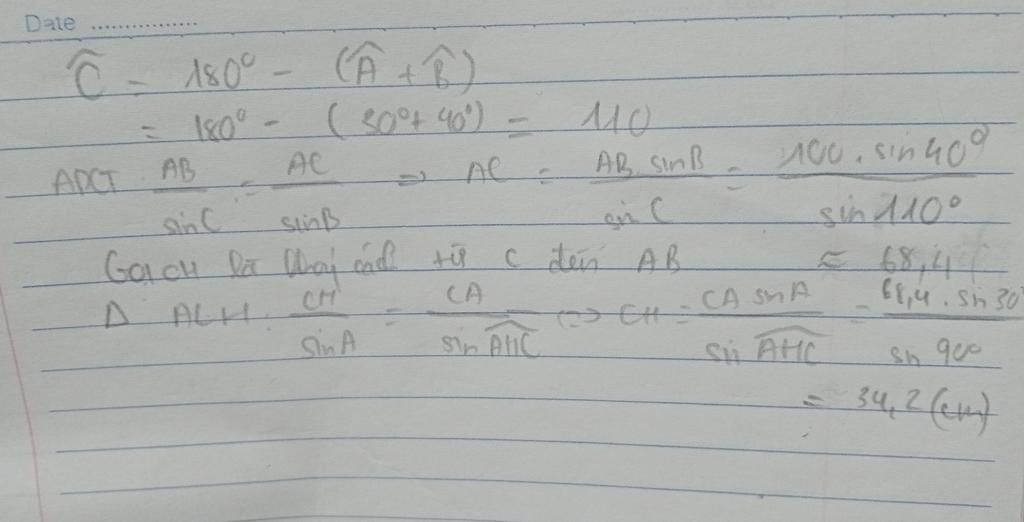 Date ................
Ĉ = 180° - (Â + B̂)
= 180° - (30° + 40°) = 110
ADCT AB/sinC = AC/sinB => AC = AB.sinB/sin C = 100.sin40°/sin110°
≈ 68,4
Gọi CH là khoảng cách từ C đến AB
Δ ACH: CH/sinA = CA/sin AHC <=> CH = CA sinA/sin AHC = 68,4.sin30°/sin 90°
= 34,2 (cm)